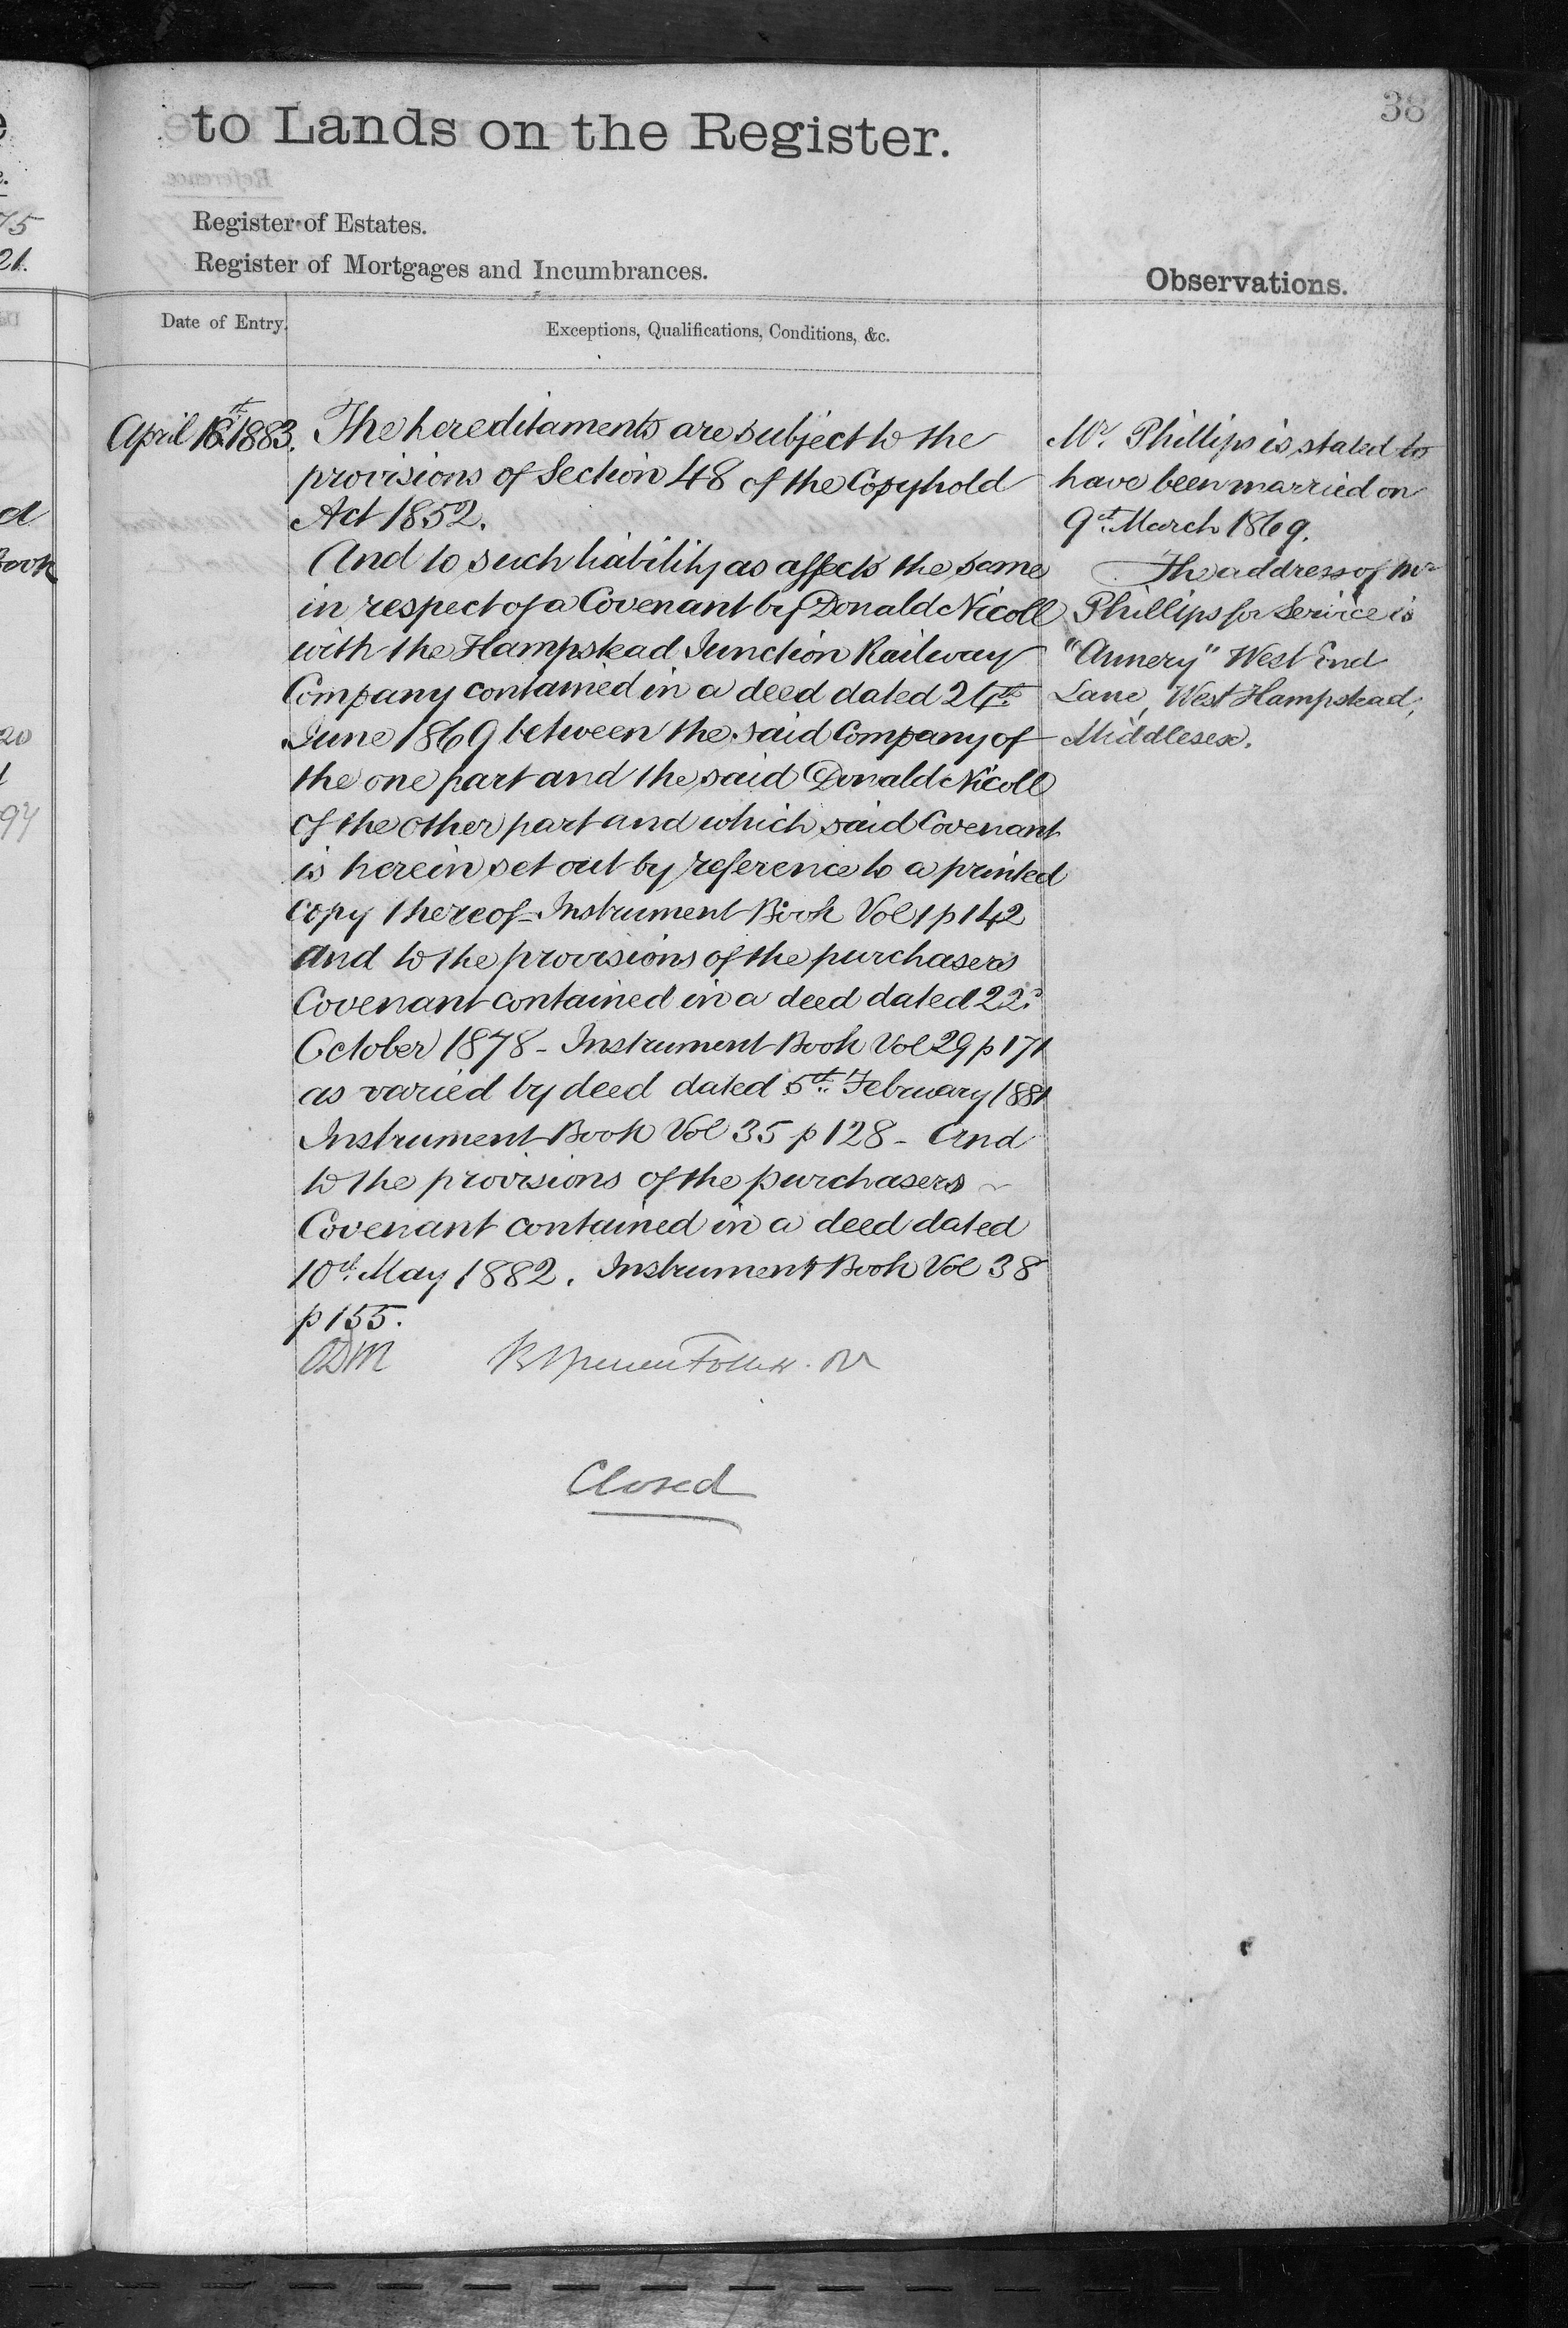 38
to Lands on the Register.
Register of Estates.
Register of Mortgages and Incumbrances.
Observations.
Date of Entry.
Exceptions, Qualifications, Conditions, &c.
April 18th 1883.
The hereditaments are subject to the
provisions of Section 48 of the Copyhold
Act 1852.
And to such liability as affects the same
in respect of a Covenant by Donald Nicoll
with the Hampstead Junction Railway
Company contained in a deed dated
June 1869 between the said Company of
the one part and the said Donald Nicoll
of the other part and which said Covenant
is herein set out by reference to a printed
copy thereof - Instrument Book Vol 1 p 142
And to the provisions of the purchasers
Covenant contained in a deed dated 22d
October 1878 - Instrument Book Vol 29 p 171
as varied by deed dated 5th February 1881
Instrument Book Vol 35 p 128 - And
to the provisions of the purchasers
Covenant contained in a deed dated
10th May 1882. Instrument Book Vol 38
p 155.
Closed
Mr. Phillips is stated to
have been married on
9th March 1869.
The address of Mr
Phillips for Service is
"Annery" West End
Lane, West Hampstead,
Middlesex.